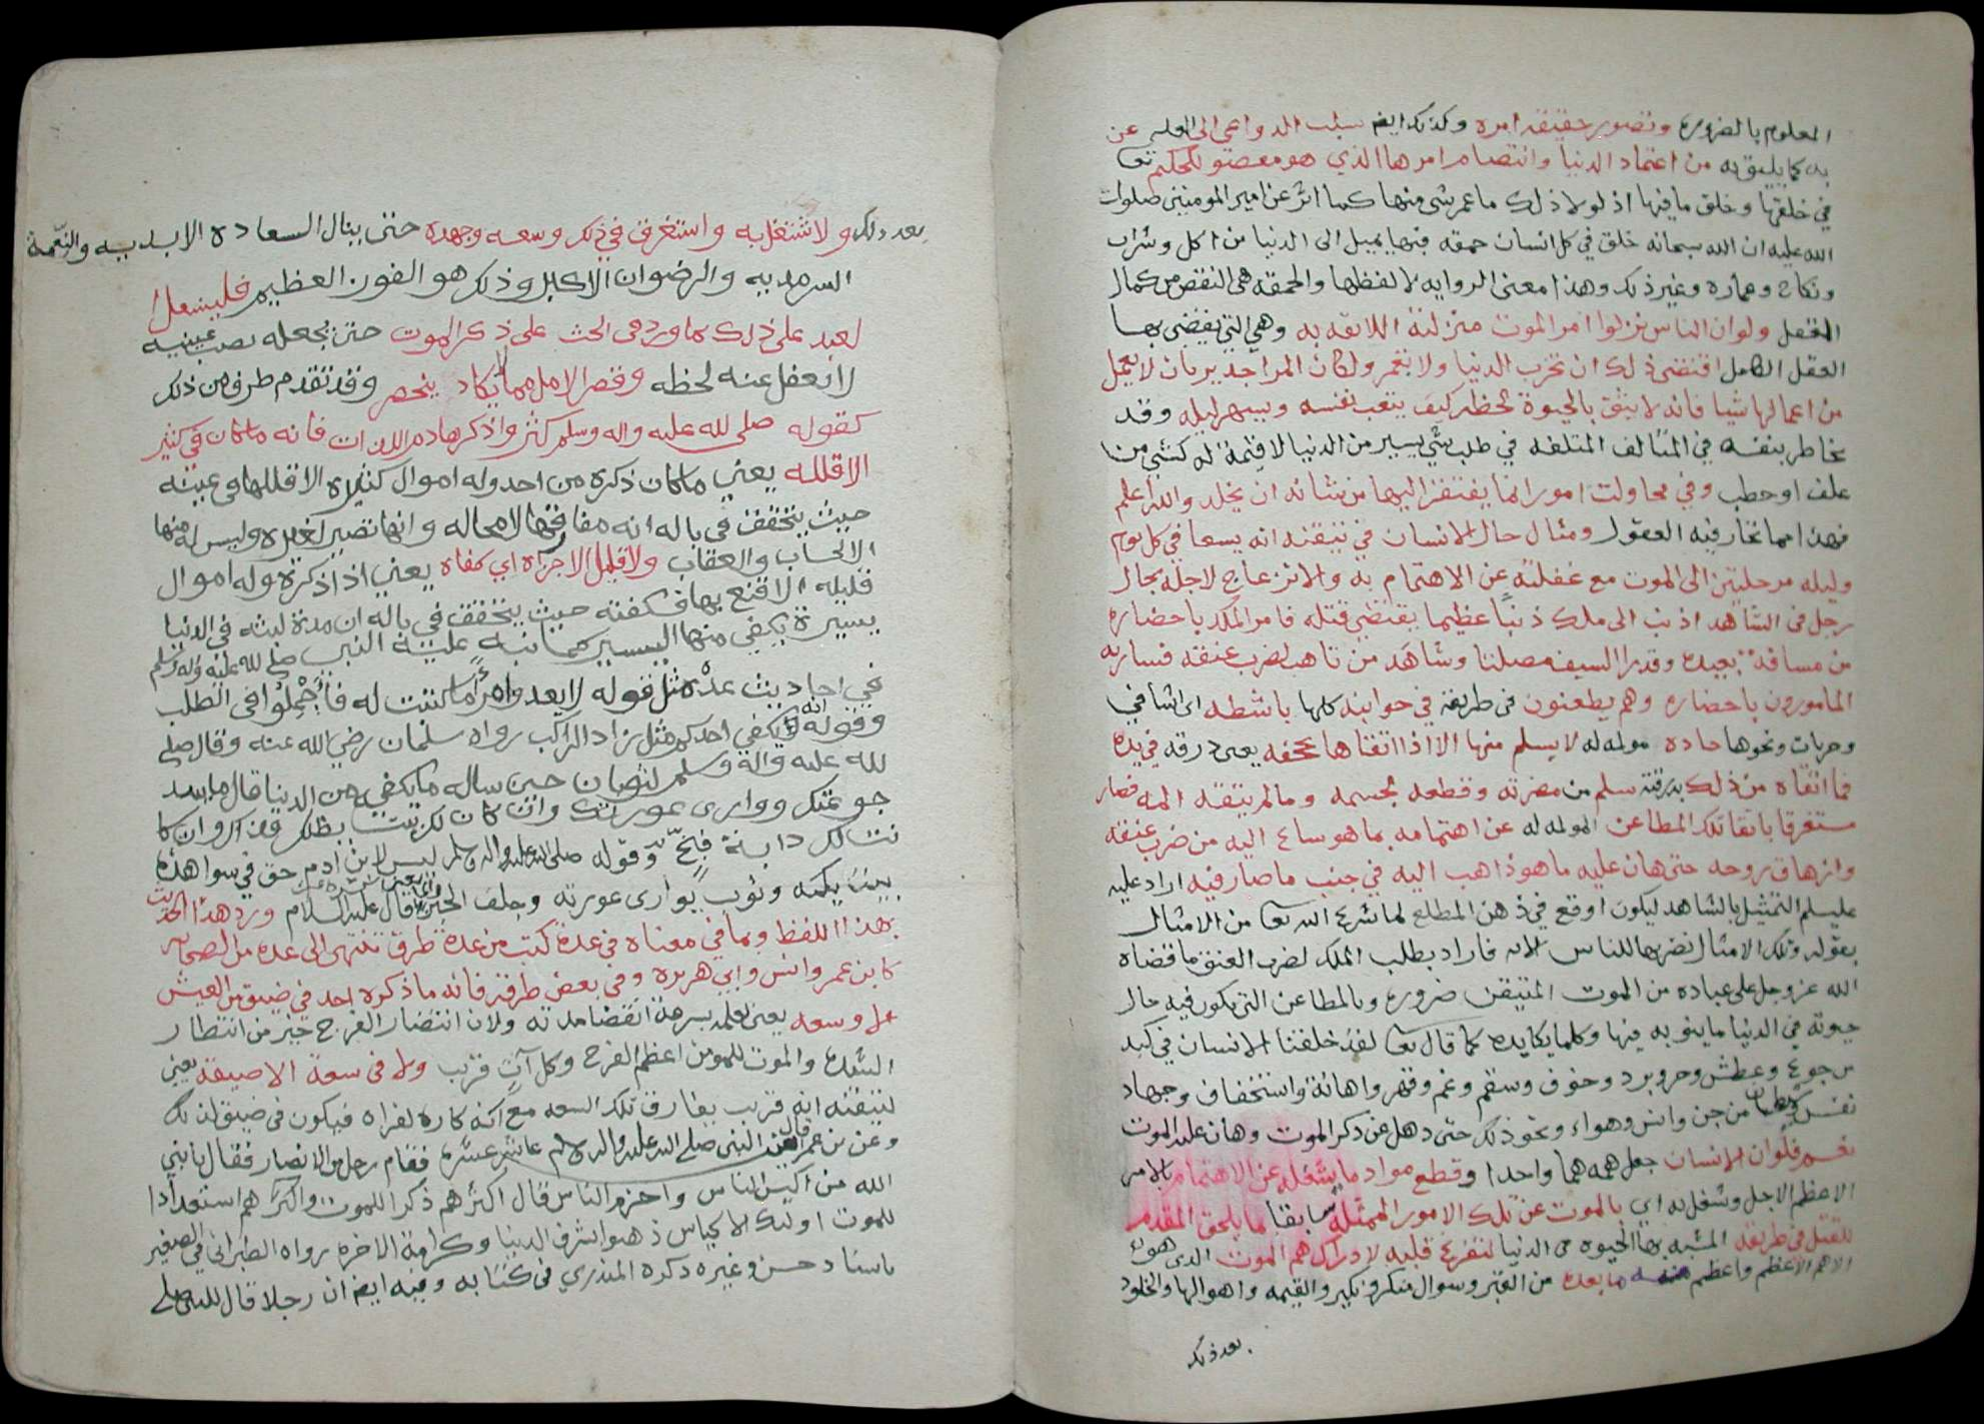 المعلوم بالضرورة وتصور حقيقة امره وكذلك ايضا سلب الدواعي الى العلم عن
به كما يليق به من اعتماد الدنيا وانتصام امرها الذي هو مقصود للحكيم تعا
في خلقها وخلق ما فيها اذ لولا ذلك ما عمر شي منها كما اثر عن امير المومنين صلوات
الله عليه ان الله سبحانه خلق في كل انسان حمقه فبها يميل الى الدنيا من اكل وشراب
ونكاح وعماره وغير ذلك وهذا معنى الروايه لا لفظها والحمقه هي النقص من كمال
العقل ولو ان الناس نزلوا امر الموت منزلته اللائقه به وهي التي يقتضي بها
العقل الكامل اقتضى ذلك ان تخرب الدنيا ولا تعمر ولكان المرا جدير بان لا يعمل
من اعمالها شيا فانه لا يثق بالحيوة لحظه كيف يتعب نفسه ويسهر ليله وقد
يخاطر بنفسه في المتالف المتلفه في طلب شي يسير من الدنيا لا قيمة له كشي من
علف او حطب وفي محاولت امور انما يفتقر اليها من شانه ان يخلد والله اعلم
فهذا مما تحار فيه العقول ومثال حال الانسان في تيقنه انه يسعا في كل يوم
وليله مرحلتين الى الموت مع غفلته عن الاهتمام به والانزعاج لاجله بحال
رجل في الشاهد اذنب الى ملك ذنبا عظيما يقتضي قتله فامر الملك باحضاره
من مسافة بعيدة وقد برا السيف مصلتا وشاهد من تاهب لضرب عنقه فسار به
المامورون باحضاره وهم يطعنون في طريقه في جوانبه كلها باشطه اي اشافي
وحربات ونحوها حاده مولمه له لا يسلم منها الا اذا اتقاها بحجفه يعني درقه في يده
فما اتقاه من ذلك بدرقته سلم من مضرته وقطعه بجسمه وما لم يتقه المه فصار
مستغرقا باتقا تلك المطاعن المولمه له عن اهتمامه بما هو ساع اليه من ضرب عنقه
وازهاق روحه حتى هان عليه ما هو ذاهب اليه في جنب ما صار فيه اراد عليه
عليسلم التمثيل بالشاهد ليكون اوقع في ذهن المطلع لما شرع الله تعا من الامثال
بقوله وتلك الامثال نضربها للناس الايه فاراد بطلب الملك لضرب العنق ما قضاه
الله عز وجل على عباده من الموت المتيقن ضرورة وبالمطاعن التي يكون فيه حال
حيوته في الدنيا ما ينوبه فيها وكلما يكايده كما قال تعا لقد خلقنا الانسان في كبد
من جوع وعطش وحر وبرد وخوف وسقم وغم وقهر واهانة واستخفاف وجهاد
نفس وشيطان من جن وانس وهواء ونحو ذلك حتى ذهل عن ذكر الموت وهان عليه الموت
نعم فلو ان الانسان جعل همه هما واحدا وقطع مواد ما يشغله عن الاهتمام بالامر
الاعظم الاجل وشغل به اي بالموت عن تلك الامور الممثله سابقا بما يلحق المقدم
للقتل في طريقه المشبه بها الحيوه في الدنيا لتفرغ قلبه لادراك هم الموت الذي هو
الاهم الاعظم واعظم منه ما بعده من القبر وسوال منكر ونكير والقيمه واهوالها والخلود
بعد ذلك
بعد ذلك ولاشتغل به واستغرق في ذلك وسعه وجهده حتى ينال السعاده الابديه والنعمة
السرمديه والرضوان الاكبر وذلك هو الفوز العظيم فليستعن ا
لعبد على ذلك بما ورد في الحث على ذكر الموت حتى يجعله نصب عينيه
لا يغفل عنه لحظه وقصر الامل مما لا يكاد ينحصر وقد تقدم طرف من ذلك
كقوله صلى الله عليه واله وسلم اكثروا ذكر هادم اللذات فانه ما كان في كثير
الا قلله يعني ما كان ذكره من احد وله اموال كثيره الا قللها في عينه
حيث يتحقق في باله انه مفارقها لا محاله وانها تصير لغيره وليس له منها
الا الحساب والعقاب ولا قليل الا اجزاه اي كفاه يعني اذا ذكره وله اموال
قليله الا قنع بها فكفته حيث يتحقق في باله ان مدة لبثه في الدنيا
يسيرة يكفي منها اليسير كما نبه عليه النبي صلى الله عليه واله وسلم
في احاديث عده مثل قوله لا يعد وامرا ما كتب له فاجملوا في الطلب
وقوله انه يكفي احدكم مثل زاد الراكب رواه سلمان رضي الله عنه وقال صلى
لله عليه واله وسلم لثوبان حين ساله ما يكفيني من الدنيا قال ما سد
جوعتك ووارى عورتك وان كان لك بيت يظلك فذاك وان كا
نت لك دابة فبخ وقوله صلى الله عليه واله وسلم ليس لابن ادم حق في سوا هذه
بيت يكنه وثوب يوارى عورته وجلف الخبز والماء قال عليه السلام ورد هذا الحديث
بهذا اللفظ وبما في معناه في عدة كتب من عدة طرق تنتهي الى عده من الصحابه
كابن عمر وانس وابي هريره وفي بعض طرقه فانه ما ذكره احد في ضيق من العيش
الا وسعه يعني لعلمه بسرعة انقضا مدته ولان انتضار الفرج خير من انتظار
الشده والموت للمومن اعظم الفرج وكل آت قريب ولا في سعة الا ضيقه يعني
لتيقنه انه قريب يفارق تلك السعه مع انه كاره لفراقه فيكون في ضيق لذلك
وعن بن عمر قال اتيت النبي صلى الله عليه واله وسلم عاشر عشره فقام رجل من الانصار فقال يا نبي
الله من اكيس الناس واحزم الناس قال اكثرهم ذكرا للموت واكثرهم استعدادا
للموت اولئك الاكياس ذهبوا بشرف الدنيا وكرامة الاخره رواه الطبراني في الصغير
باسناد حسن وغيره ذكره المنذري في كتابه وفيه ايضا ان رجلا قال للنبي صلى